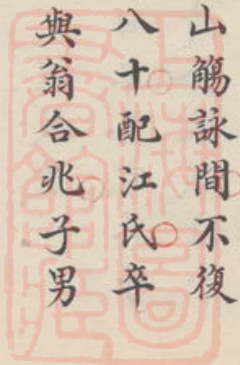 山觴詠間不復
八十配江氏卒
與翁合兆子男